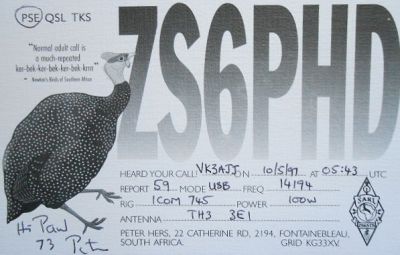 PSE QSL TKS
ZS6PHD
"Normal adult call is
a much-repeated
ker-bek-ker-bek-ker-bek-krrrr"
Newman's Birds of Southern Africa
HEARD YOUR CALL: VK3AJJ ON 10/5/97 AT 05:43 UTC
REPORT 59 MODE USB FREQ 14194
RIG ICOM 745 POWER 100W
ANTENNA TH3 3E1
PETER HERS, 22 CATHERINE RD, 2194, FONTAINEBLEAU,
SOUTH AFRICA. GRID KG33XV.
Hi Paul
73 Peter